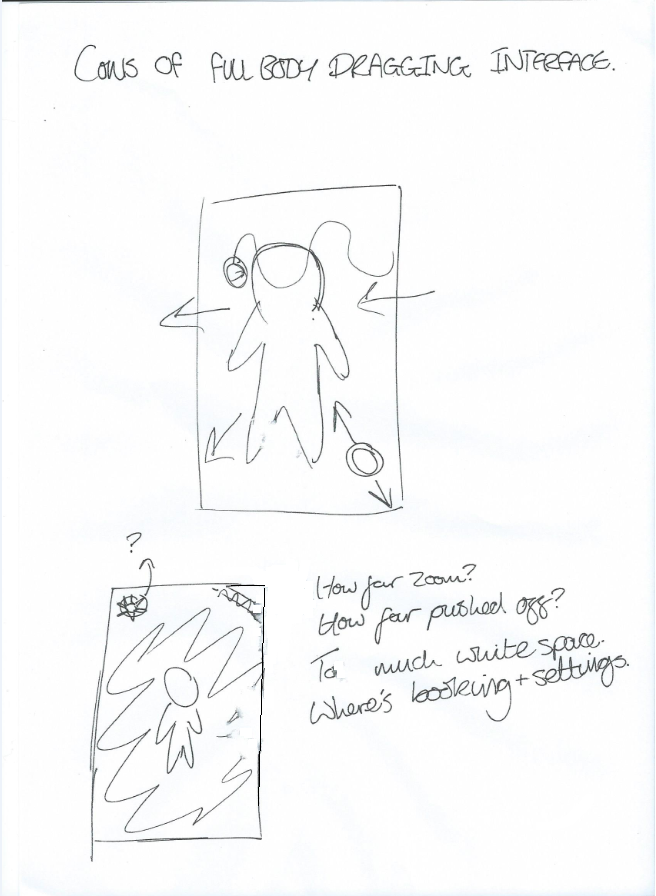 CONS OF FULL BODY DRAGGING INTERFACE.
?
How far zoom?
How far pushed off?
To much white space.
Where's booking + settings.